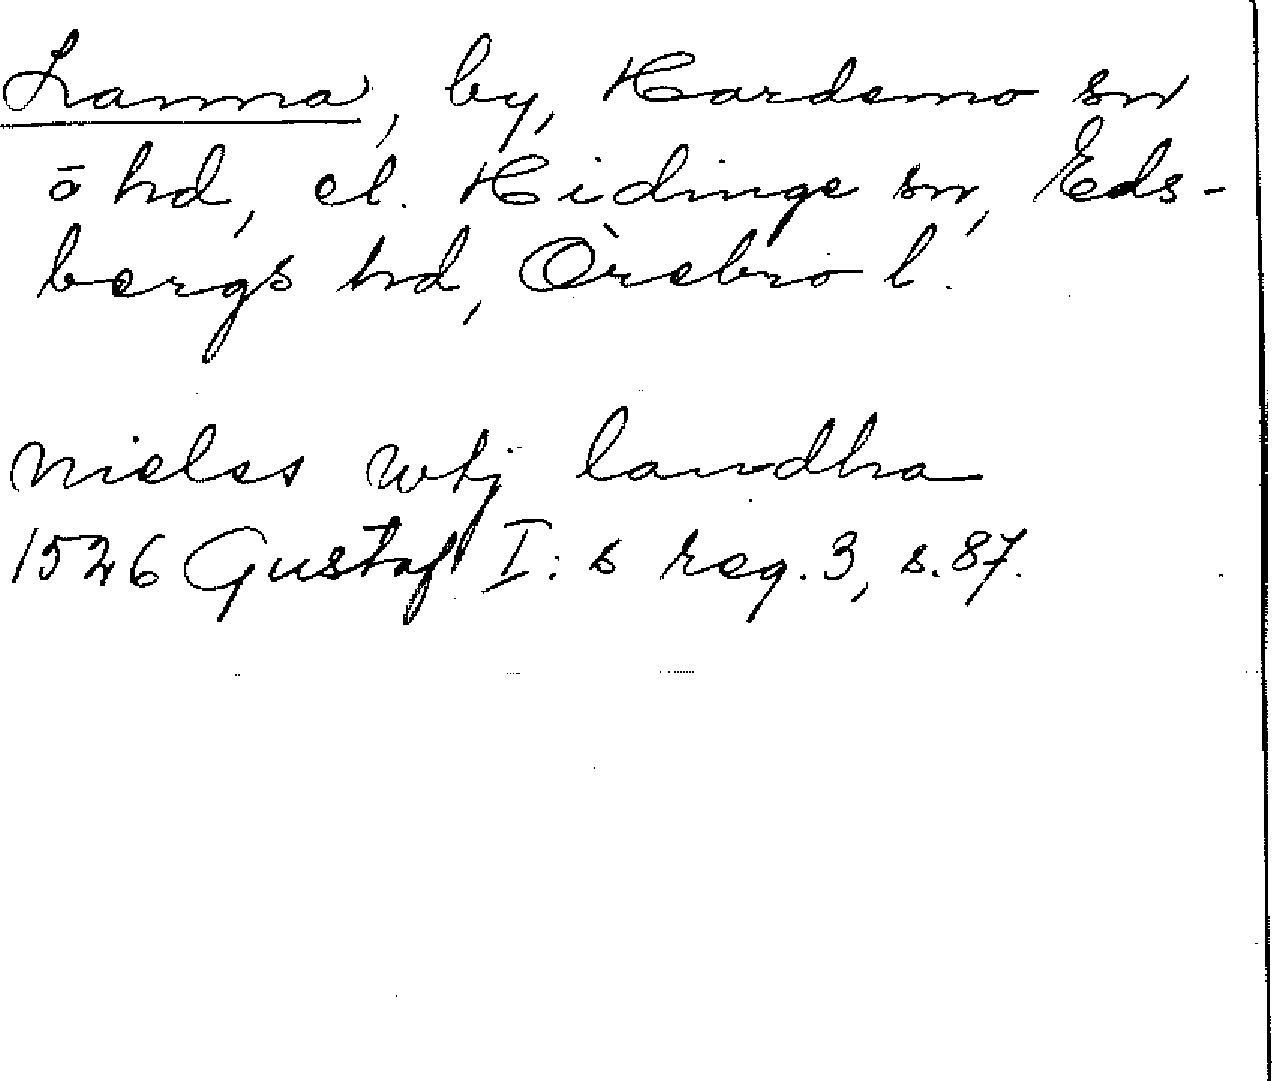 Lanna, by, Hardemo sn
o hd, el. Hidinge sn, Eds-
bergs hd, Örebro l.
nielss wtj landha
1526 Gustaf I:s reg. 3, s. 87.